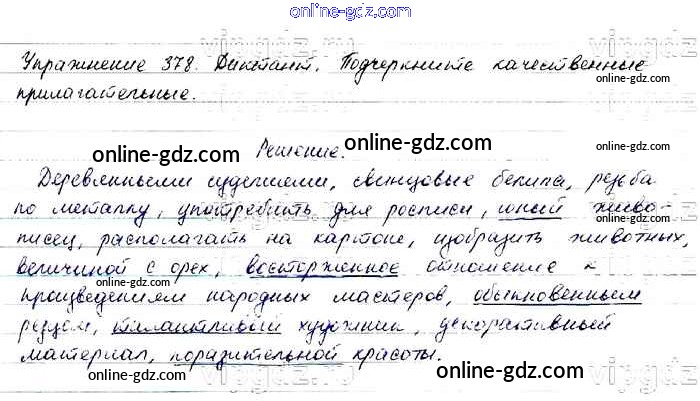 online-gdz.com
Упражнение 378. Диктант. Подчеркните качественные
online-gdz.com
прилагательные.
online-gdz.com
Решение.
online-gdz.com
Деревянными изделиями, свинцовые белила, резьба
по металлу, употребить для росписи, юный живо-
online-gdz.com
писец, располагать на картоне, изобразить животных,
величиной с орех, восторженное отношение к
произведениям народных мастеров, обыкновенным
online-gdz.com
резцом, талантливый художник, декоративный
материал, поразительной красоты.
online-gdz.com
online-gdz.com